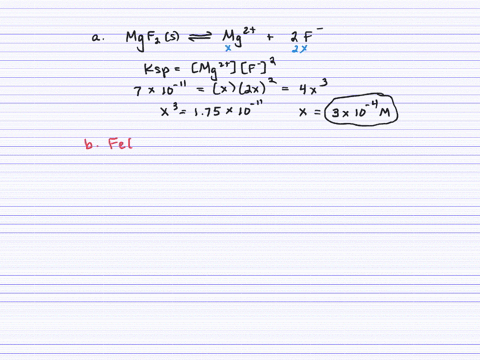 a. MgF₂(s) ⇌ Mg²⁺ + 2F⁻
x 2x
Ksp = [Mg²⁺][F⁻]²
7 × 10⁻¹¹ = (x)(2x)² = 4x³
x³ = 1.75 × 10⁻¹¹ x = 3 × 10⁻⁴ M
b. Fe(